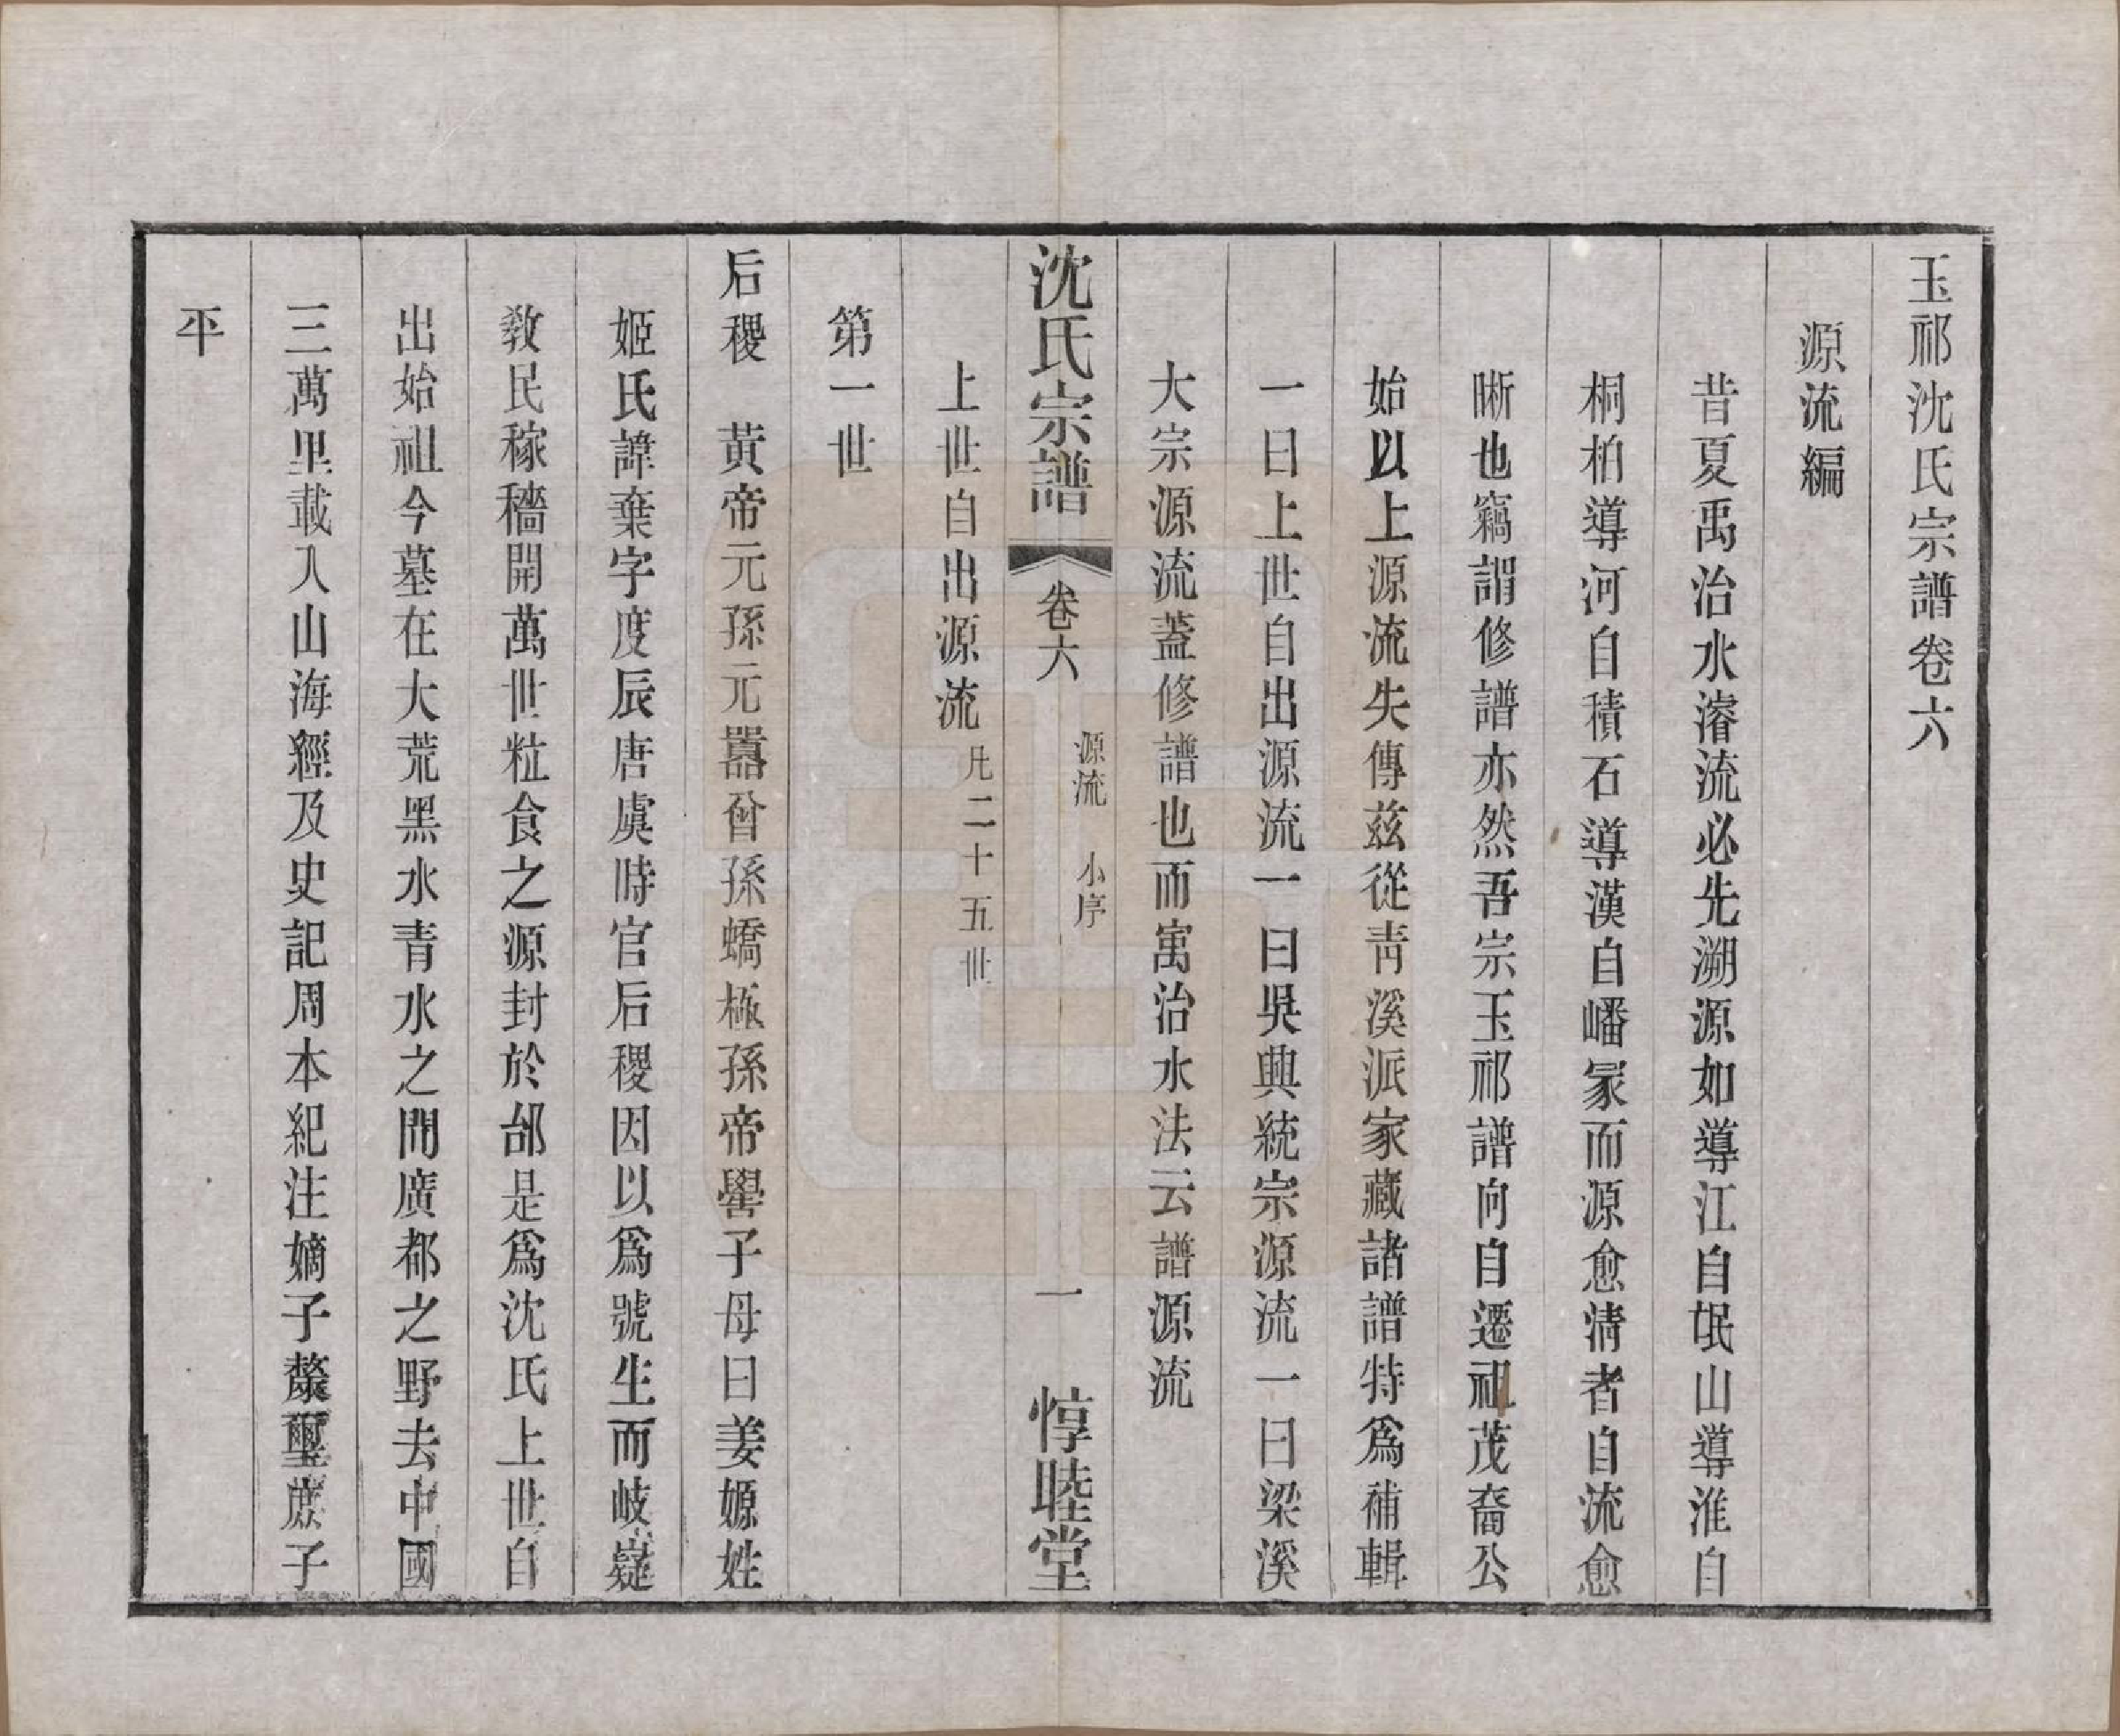 玉祁沈氏宗譜卷六
源流編
昔夏禹治水濬流必先溯源如導江自岷山導淮自
桐柏導河自積石導漢自嶓冢而源愈淸者自流愈
晰也竊謂修譜亦然吾宗玉祁譜向自遷祖茂裔公
始以上源流失傳茲從靑溪派家藏諸譜特爲補輯
一曰上世自出源流一曰吳興統宗源流一曰梁溪
大宗源流蓋修譜也而寓治水法云譜源流
沈氏宗譜 卷六 源流 小序 一 惇睦堂
上世自出源流凡二十五世
第一世
后稷 黃帝元孫元囂曾孫蟜極孫帝嚳子母曰姜嫄姓
姬氏諱棄字度辰唐虞時官后稷因以爲號生而岐嶷
敎民稼穡開萬世粒食之源封於邰是爲沈氏上世自
出始祖今墓在大荒黑水青水之間廣都之野去中國
三萬里載入山海經及史記周本紀注嫡子漦璽庶子
丕